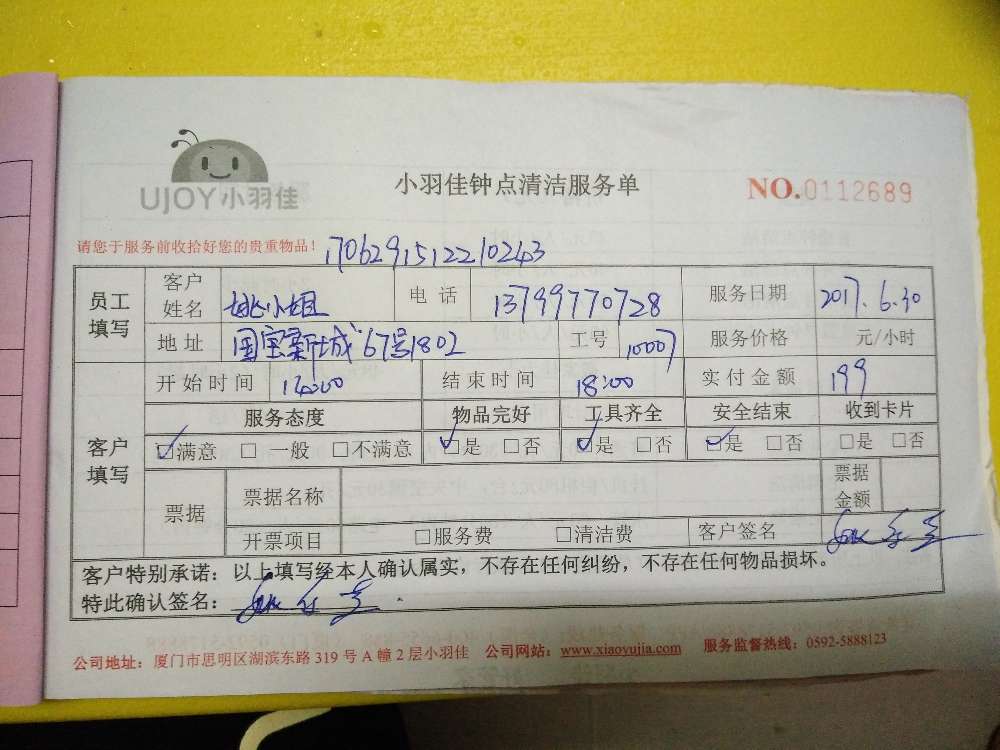 UJOY小羽佳
小羽佳钟点清洁服务单
NO.0112689
请您于服务前收拾好您的贵重物品！
17062915122210243
员工填写 客户姓名 姚小姐 电话 13799770728 服务日期 2017.6.30
地址 国宝新城67号1802 工号 10007 服务价格 元/小时
客户填写 开始时间 14:00 结束时间 18:00 实付金额 199
服务态度 物品完好 工具齐全 安全结束 收到卡片
☑满意 □一般 □不满意 ☑是 □否 ☑是 □否 ☑是 □否 □是 □否
票据 票据名称 票据金额
开票项目 □服务费 □清洁费 客户签名
客户特别承诺：以上填写经本人确认属实，不存在任何纠纷，不存在任何物品损坏。
特此确认签名：
公司地址：厦门市思明区湖滨东路319号A幢2层小羽佳 公司网站：www.xiaoyujia.com 服务监督热线：0592-5888123